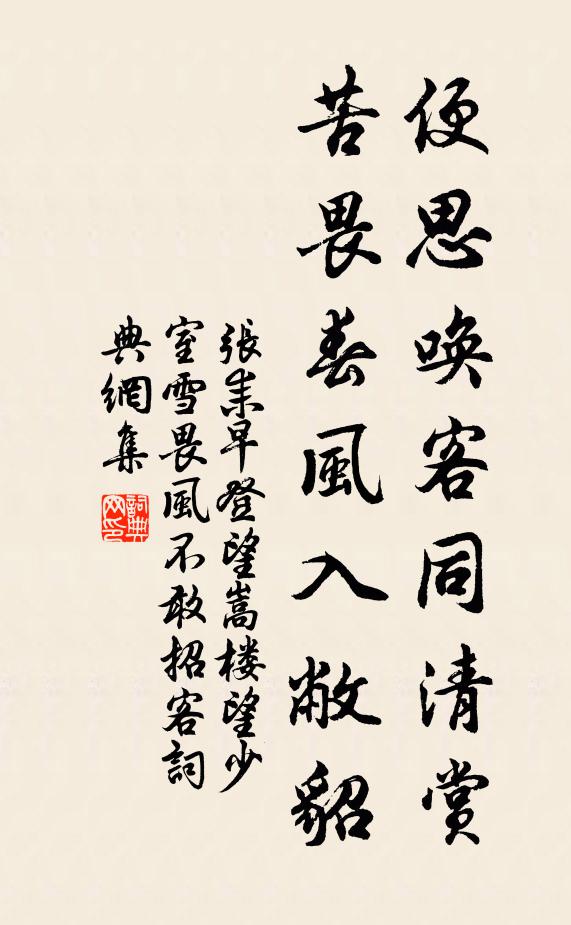 便思喚客同清賞
苦畏春風入敝貂
張耒早登望嵩樓望少
室雪畏風不敢招客詞
典網集
詞典
网印